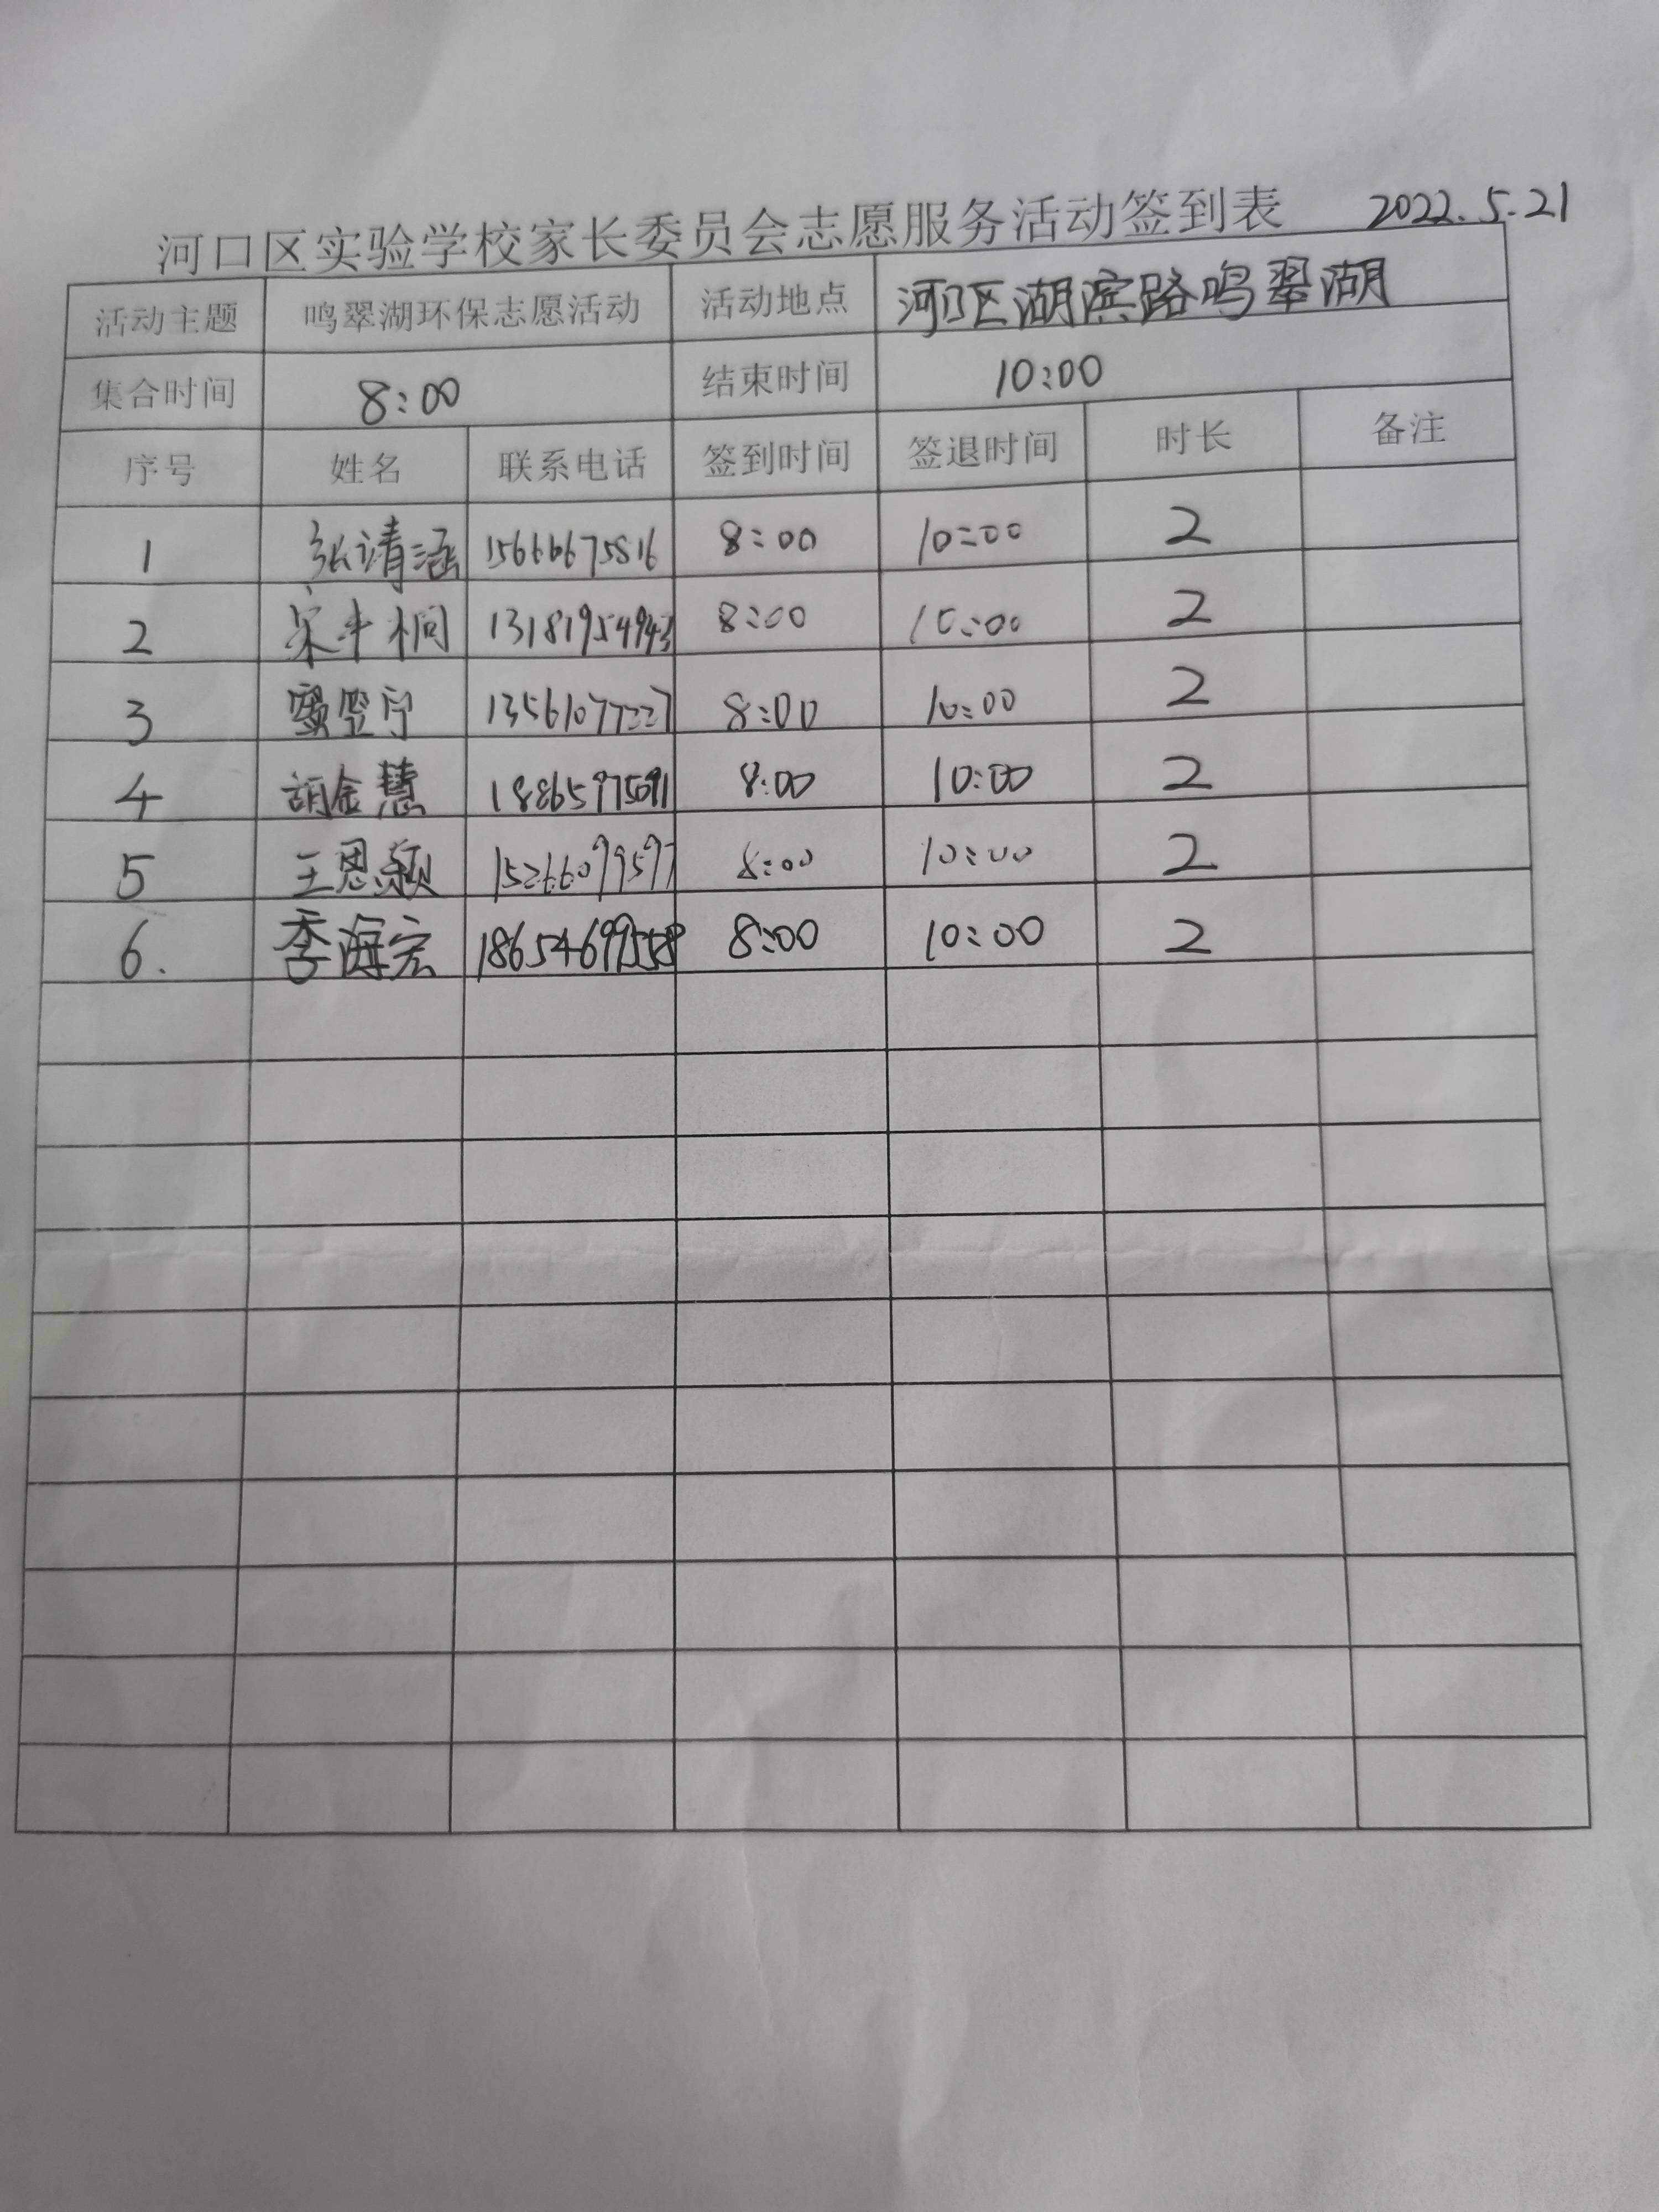 河口区实验学校家长委员会志愿服务活动签到表 2022.5.21
活动主题 鸣翠湖环保志愿活动 活动地点 河口区湖滨路鸣翠湖
集合时间 8:00 结束时间 10:00
序号 姓名 联系电话 签到时间 签退时间 时长 备注
1 张靖涵 15666675816 8:00 10:00 2
2 宋丰桐 13181954943 8:00 10:00 2
3 13561077227 8:00 10:00 2
4 胡金慧 18865975091 8:00 10:00 2
5 王恩颍 15266099597 8:00 10:00 2
6. 季海宏 18654699558 8:00 10:00 2